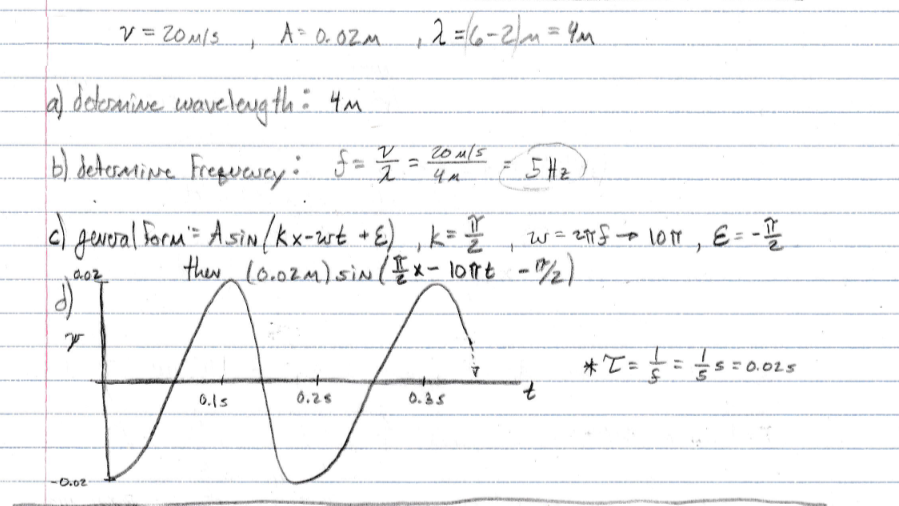 v = 20 m/s , A = 0.02m , λ = |6-2|m = 4m
a) determine wavelength : 4m
b) determine Frequency : f = v/λ = 20 m/s / 4m = 5 Hz
c) general Form = A sin (kx - wt + ε) , k = π/2 , w = 2πf → 10π , ε = - π/2
then (0.02m) sin (π/2 x - 10πt - π/2)
0.02
d)
ψ
* τ = 1/f = 1/5 s = 0.02s
0.1s 0.2s 0.3s t
-0.02